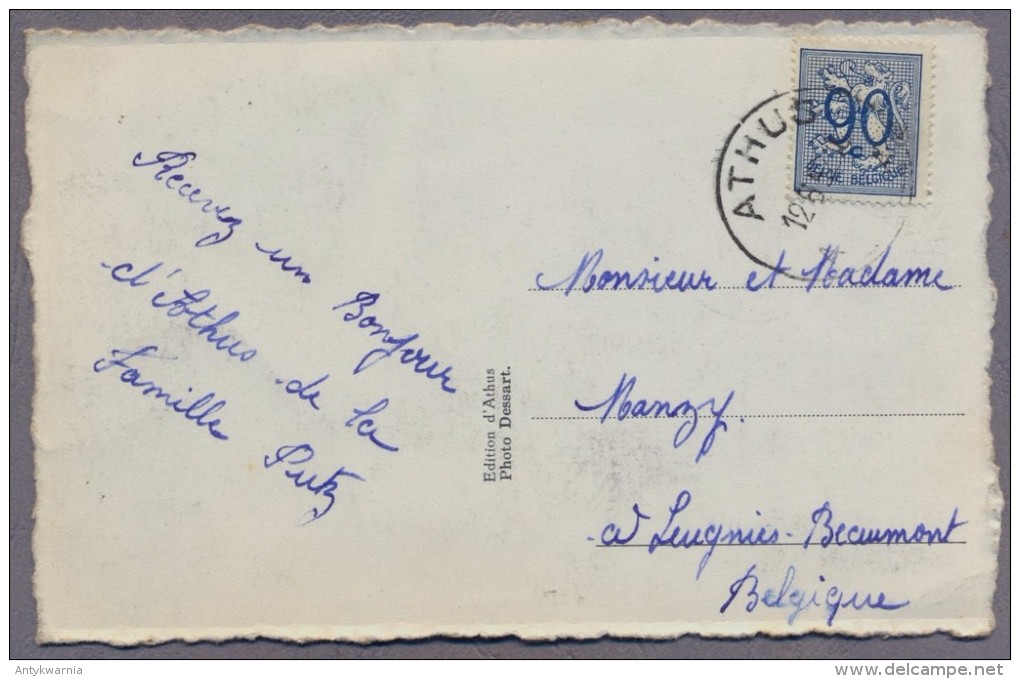 Recevez un Bonjour
d'Athus de la
famille Putz
Edition d'Athus
Photo Dessart.
ATHUS
12
90
BELGIE BELGIQUE
Monsieur et Madame
Manzy.
à Leugnies-Beaumont
Belgique
Antykwarnia
www.delcampe.net